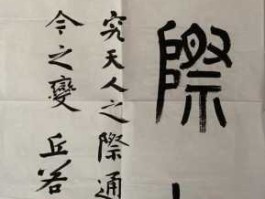 際
究天人之際通
今之變 丘